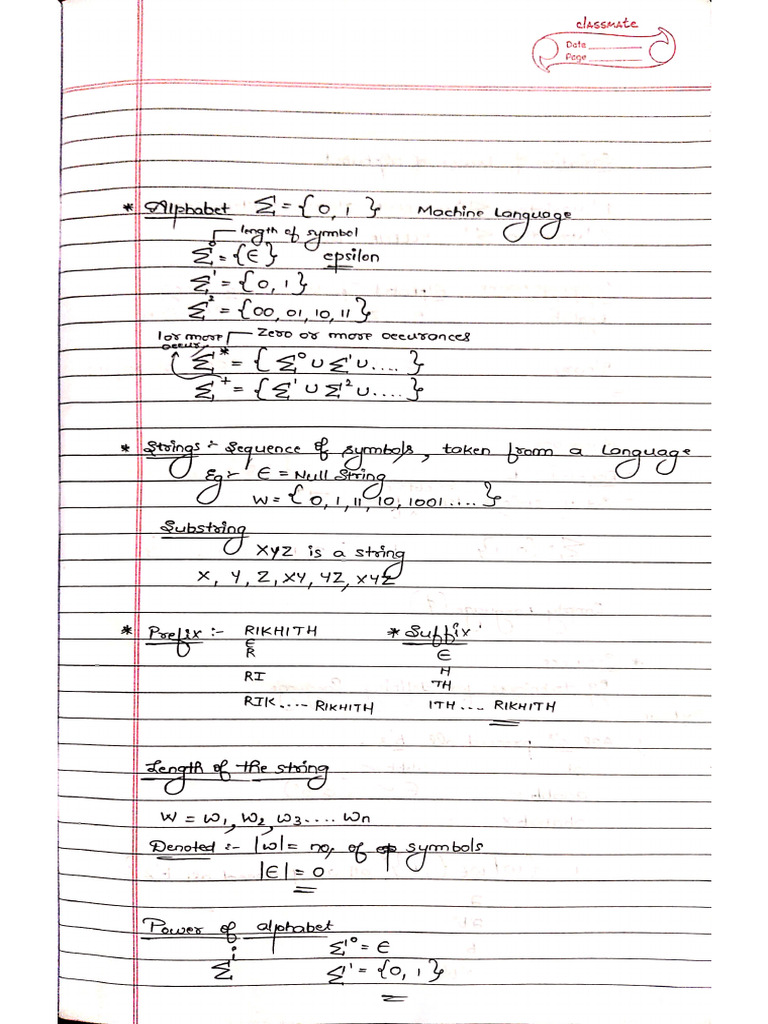 classmate
Date
Page
* Alphabet Σ = {0, 1} Machine Language
length of symbol
Σ⁰ = {ϵ} epsilon
Σ¹ = {0, 1}
Σ² = {00, 01, 10, 11}
1 or more occur. Zero or more occurances
Σ* = {Σ⁰ ∪ Σ¹ ∪ ....}
Σ⁺ = {Σ¹ ∪ Σ² ∪ ....}
* Strings :- Sequence of symbols, taken from a language
Eg :- ϵ = Null String
W = {0, 1, 11, 10, 1001 ....}
Substring
XYZ is a string
X, Y, Z, XY, YZ, XYZ
* Prefix :- RIKHITH * Suffix
ϵ ϵ
R H
RI TH
RIK .... RIKHITH ITH .... RIKHITH
Length of the string
W = w₁, w₂, w₃ .... wn
Denoted :- |w| = no, of symbols
|ϵ| = 0
Power of alphabet
Σⁱ Σ⁰ = ϵ
Σ¹ = {0, 1}